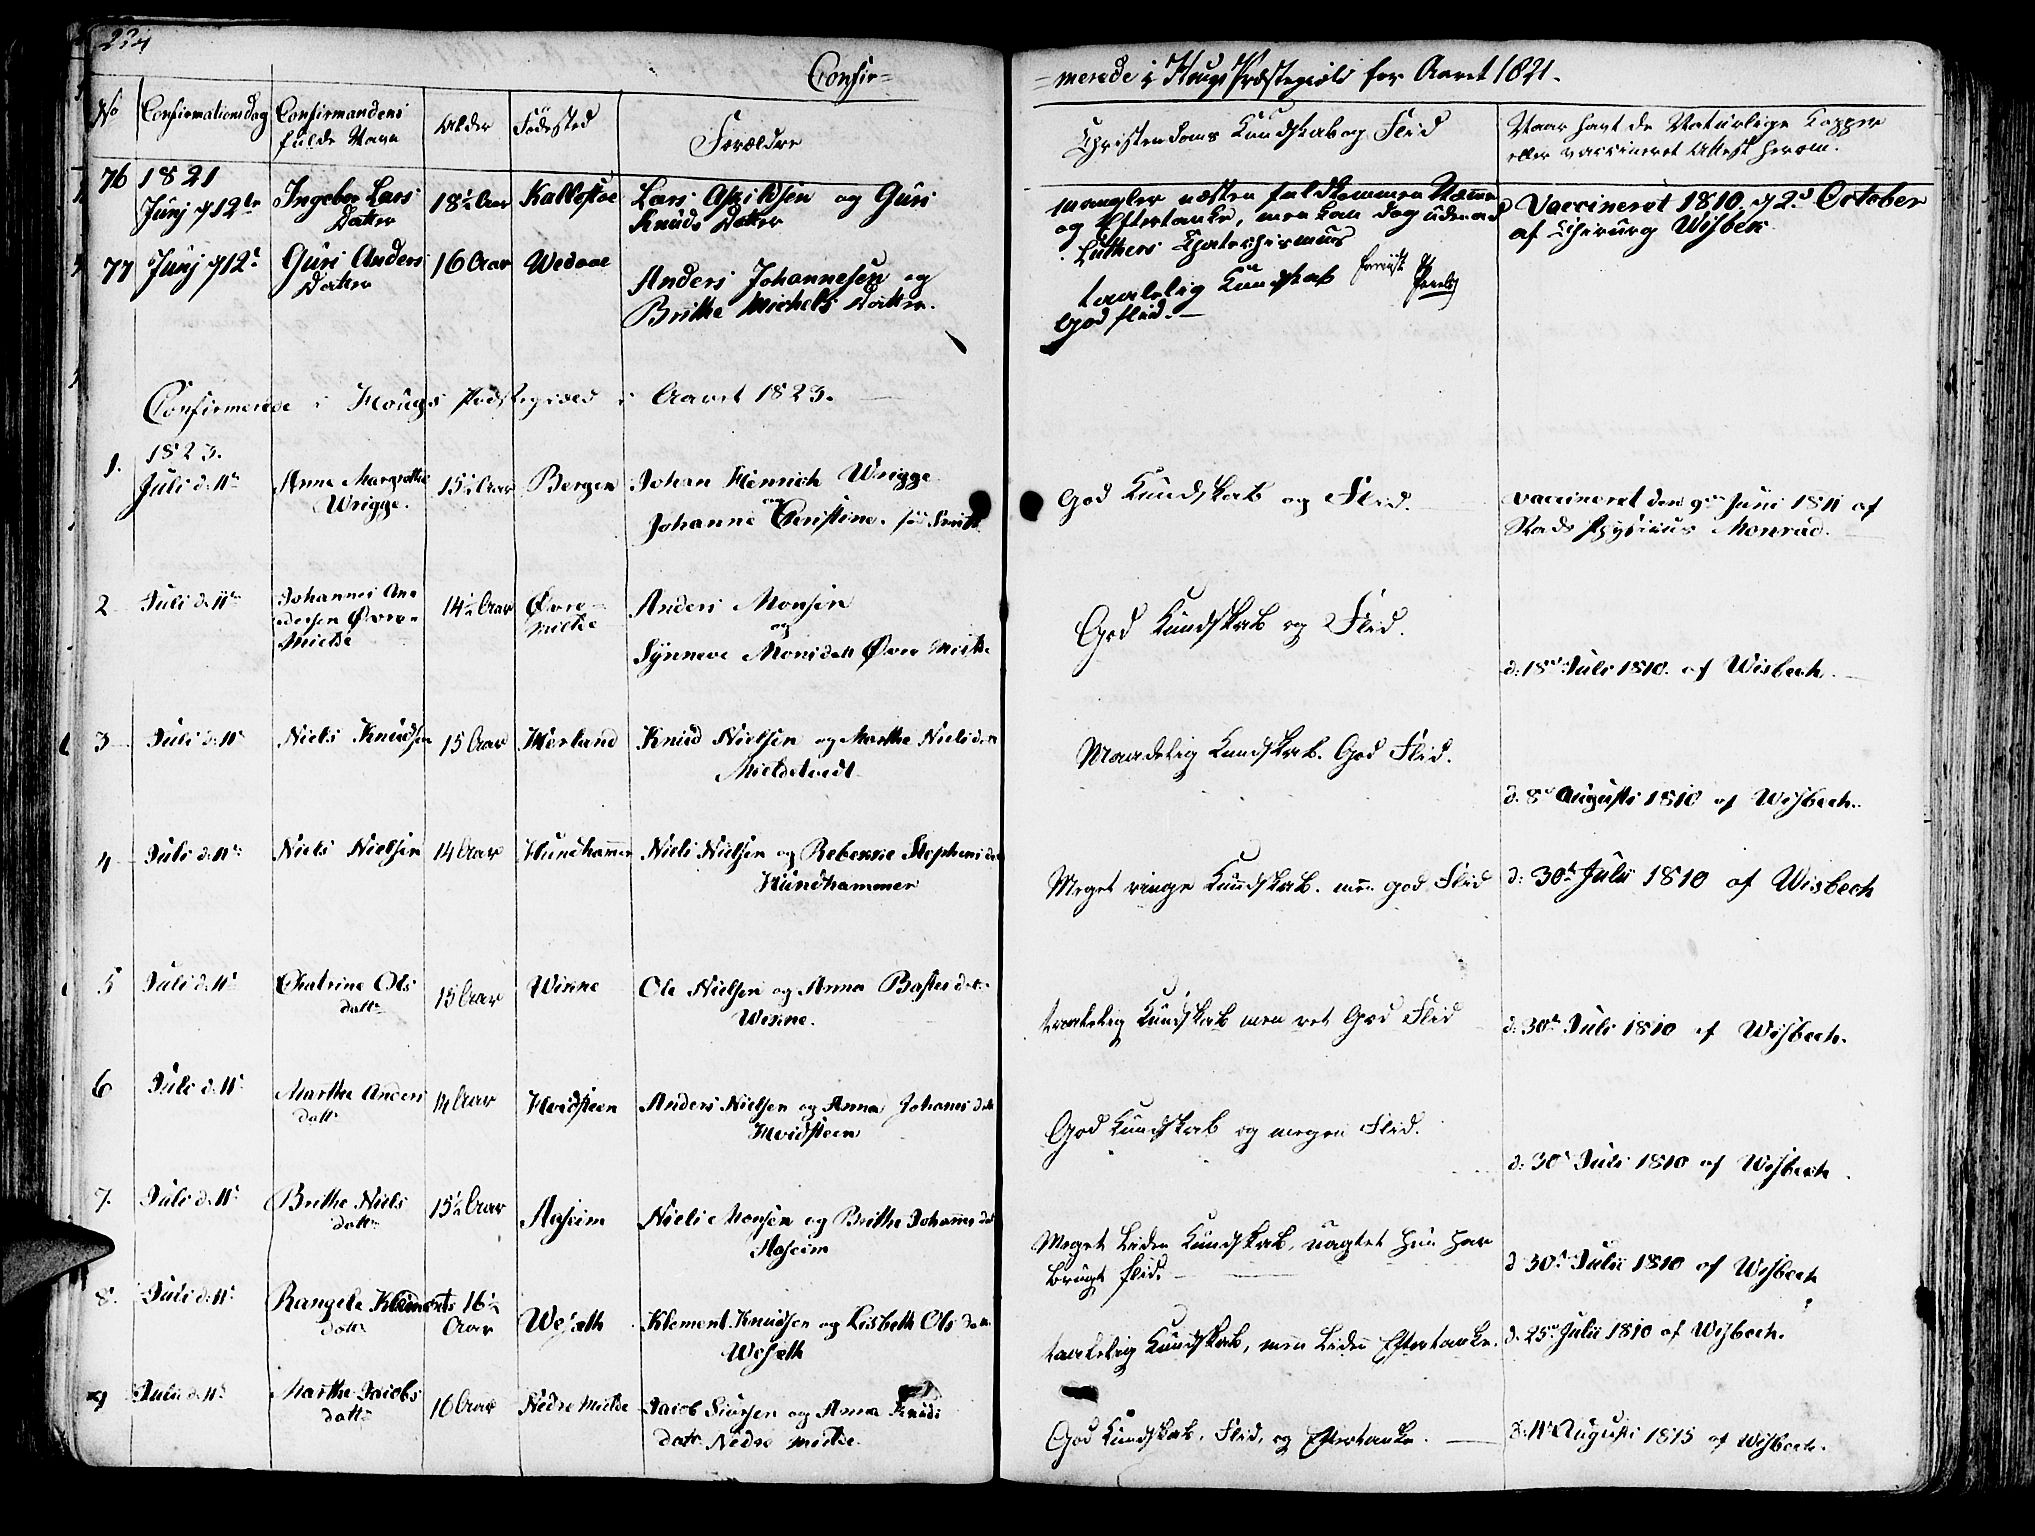 234
Confir=
=merede i Hougs Præstegield for Aaret 1821.
No Confirmationsdag Confirmandens fulde Navn Alder Fødested Forældre Christendoms Kundskab og Flid Naar havt de Naturlige Kopper
eller vaccineret Attest herom.
76 1821
Junj d 12te Ingebor Lars Datter 18½ Aar Kallestoe Lars Askildsen og Guri
Knuds Datter
mangler næsten fuldkommen
og Eftertanke, men kan dog udenad
Luthers Chatechismus
Vaccineret 1810 d 2d October
af Chirurg Wisbek
77 Junj d 12t Guri Anders Datter 16 Aar Wedaae Anders Johannesen og
Brithe Michels Datter.
taalelig Kundskab
God flid.
Confirmerede i Hougs Præstegield i Aaret 1823.
1. 1823.
Juli d. 11te Anna Margrethe Wrigge. 15½ Aar Bergen Johan Hinrich Wrigge
og
Johanne Christine. fød Smitt
God Kundskab og Flid.
vaccineret den 9de Juni 1811 af
Stads Physicus Monrad.
2 Juli d. 11te Johannes An=
dersen Øvre=
Mielde
14½ Aar Øvre=
Mielde
Anders Monsen
og
Synneve Monsdatt Øvre Mielde
God Kundskab og Flid.
d: 18de Juli 1810. af Wisbech.
3 Juli d. 11t Niels Knudsen 15 Aar Herland Knud Nielsen og Marthe Nielsdatt
Mieldetvedt
Maadelig Kundskab. God Flid.
d. 8de Augusti 1810 af Wisbech.
4 Juli d. 11te Niels Nielsen 14 Aar Hundhammer Niels Nielsen og Rebekke Stephensdat
Hundhammer
Meget ringe Kundskab. men god Flid
d: 30te Julii 1810 af Wisbech
5 Juli d. 11t Chatrine Ols datt 15 Aar Winne Ole Nielsen og Anna dat.
Winne.
taalelig Kundskab men ret God Flid
d: 30te Juli 1810 af Wisbech.
6 Juli d. 11t Marthe Anders datt 14 Aar Hvidsteen Anders Nielsen og Anna Johannes datt
Hvidsteen
God Kundskab og megen Flid.
d: 30t Juli 1810 af Wisbech.
7. Juli d. 11t Brithe Niels datt 15½ Aar Aaseim Niels Monsen og Brithe Johannes dat
Aaseim
Meget Liden Kundskab, uagtet hun har
brugt flid.
d 30te Julii 1810 af Wisbech
8. Juli d. 11t Rangele Klements datt 16½ Aar Wesæth Klement Knudsen og Lisbeth Ols datt
Wesæth
taalelig Kundskab, men Liden Eftertanke.
d. 25de Julii 1810 af Wisbech.
9 Julii d. 11t Marthe Jacobs datt 16 Aar Nedre Mielde Jacob Siursen og Anna Knuds
datt Nedre Mielde.
God Kundskab, Flid, og Eftertanke.
d. 11te Augusti 1815 af Wisbech.